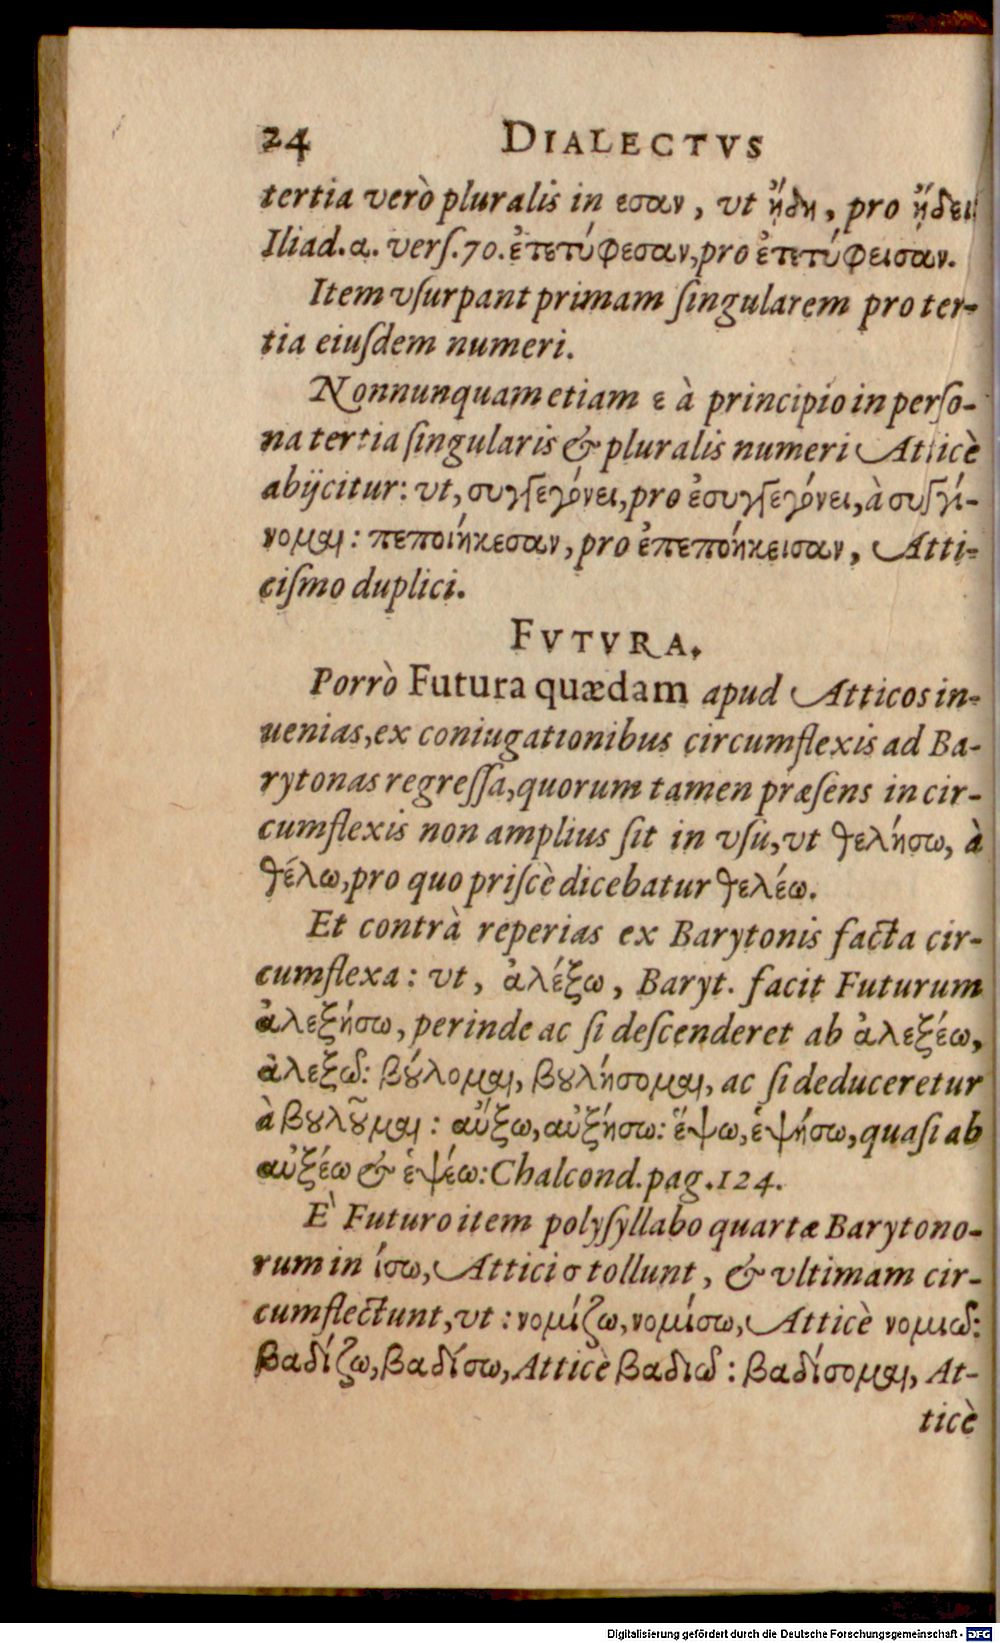 24 DIALECTVS
tertia verò pluralis in εσαν, vt ᾔδη, pro ᾔδει
Iliad. α. verſ. 70. ἐτετύφεσαν, pro ἐτετύφεισαν.
Item vſurpant primam ſingularem pro ter-
tia eiuſdem numeri.
Nonnunquam etiam ε à principio in perſo-
na tertia ſingularis & pluralis numeri Atticè
abijcitur: vt, συγγεγόνει, pro ἐσυγγεγόνει, à συγγί-
νομαι: πεποιήκεσαν, pro ἐπεποήκεισαν, Atti-
ciſmo duplici.
FVTVRA.
Porrò Futura quædam apud Atticos in-
uenias, ex coniugationibus circumflexis ad Ba-
rytonas regreſſa, quorum tamen præſens in cir-
cumflexis non amplius ſit in vſu, vt θελήσω, à
θέλω, pro quo priſcè dicebatur θελέω.
Et contrà reperias ex Barytonis facta cir-
cumflexa: vt, ἀλέξω, Baryt. facit Futurum
ἀλεξήσω, perinde ac ſi deſcenderet ab ἀλεξέω,
ἀλεξῶ: βούλομαι, βουλήσομαι, ac ſi deduceretur
à βουλοῦμαι: αὔξω, αὐξήσω: ἕψω, ἑψήσω, quaſi ab
αὐξέω & ἑψέω: Chalcond. pag. 124.
E` Futuro item polyſyllabo quartæ Barytono-
rum in ίσω, Attici σ tollunt, & vltimam cir-
cumflectunt, vt: νομίζω, νομίσω, Atticè νομιῶ:
βαδίζω, βαδίσω, Atticè βαδιῶ: βαδίσομαι, At-
ticè
Digitalisierung gefördert durch die Deutsche Forschungsgemeinschaft - DFG